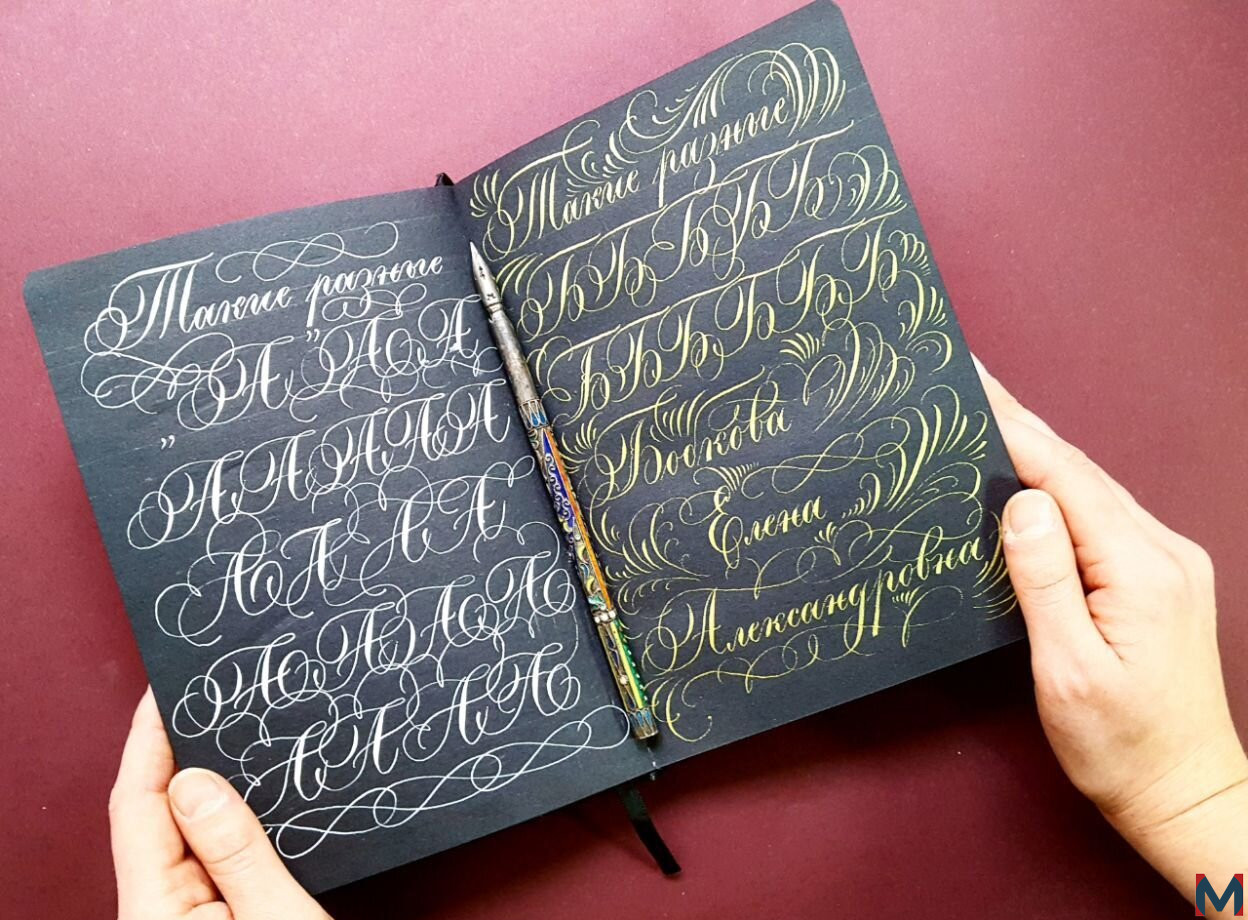 Такие разные
„А” А А
А А А А А
А А А А
А А А А
А А А А
Такие разные
Б Б Б Б Б
Б Б Б Б Б Б
Бобкова
Елена
Александровна
M